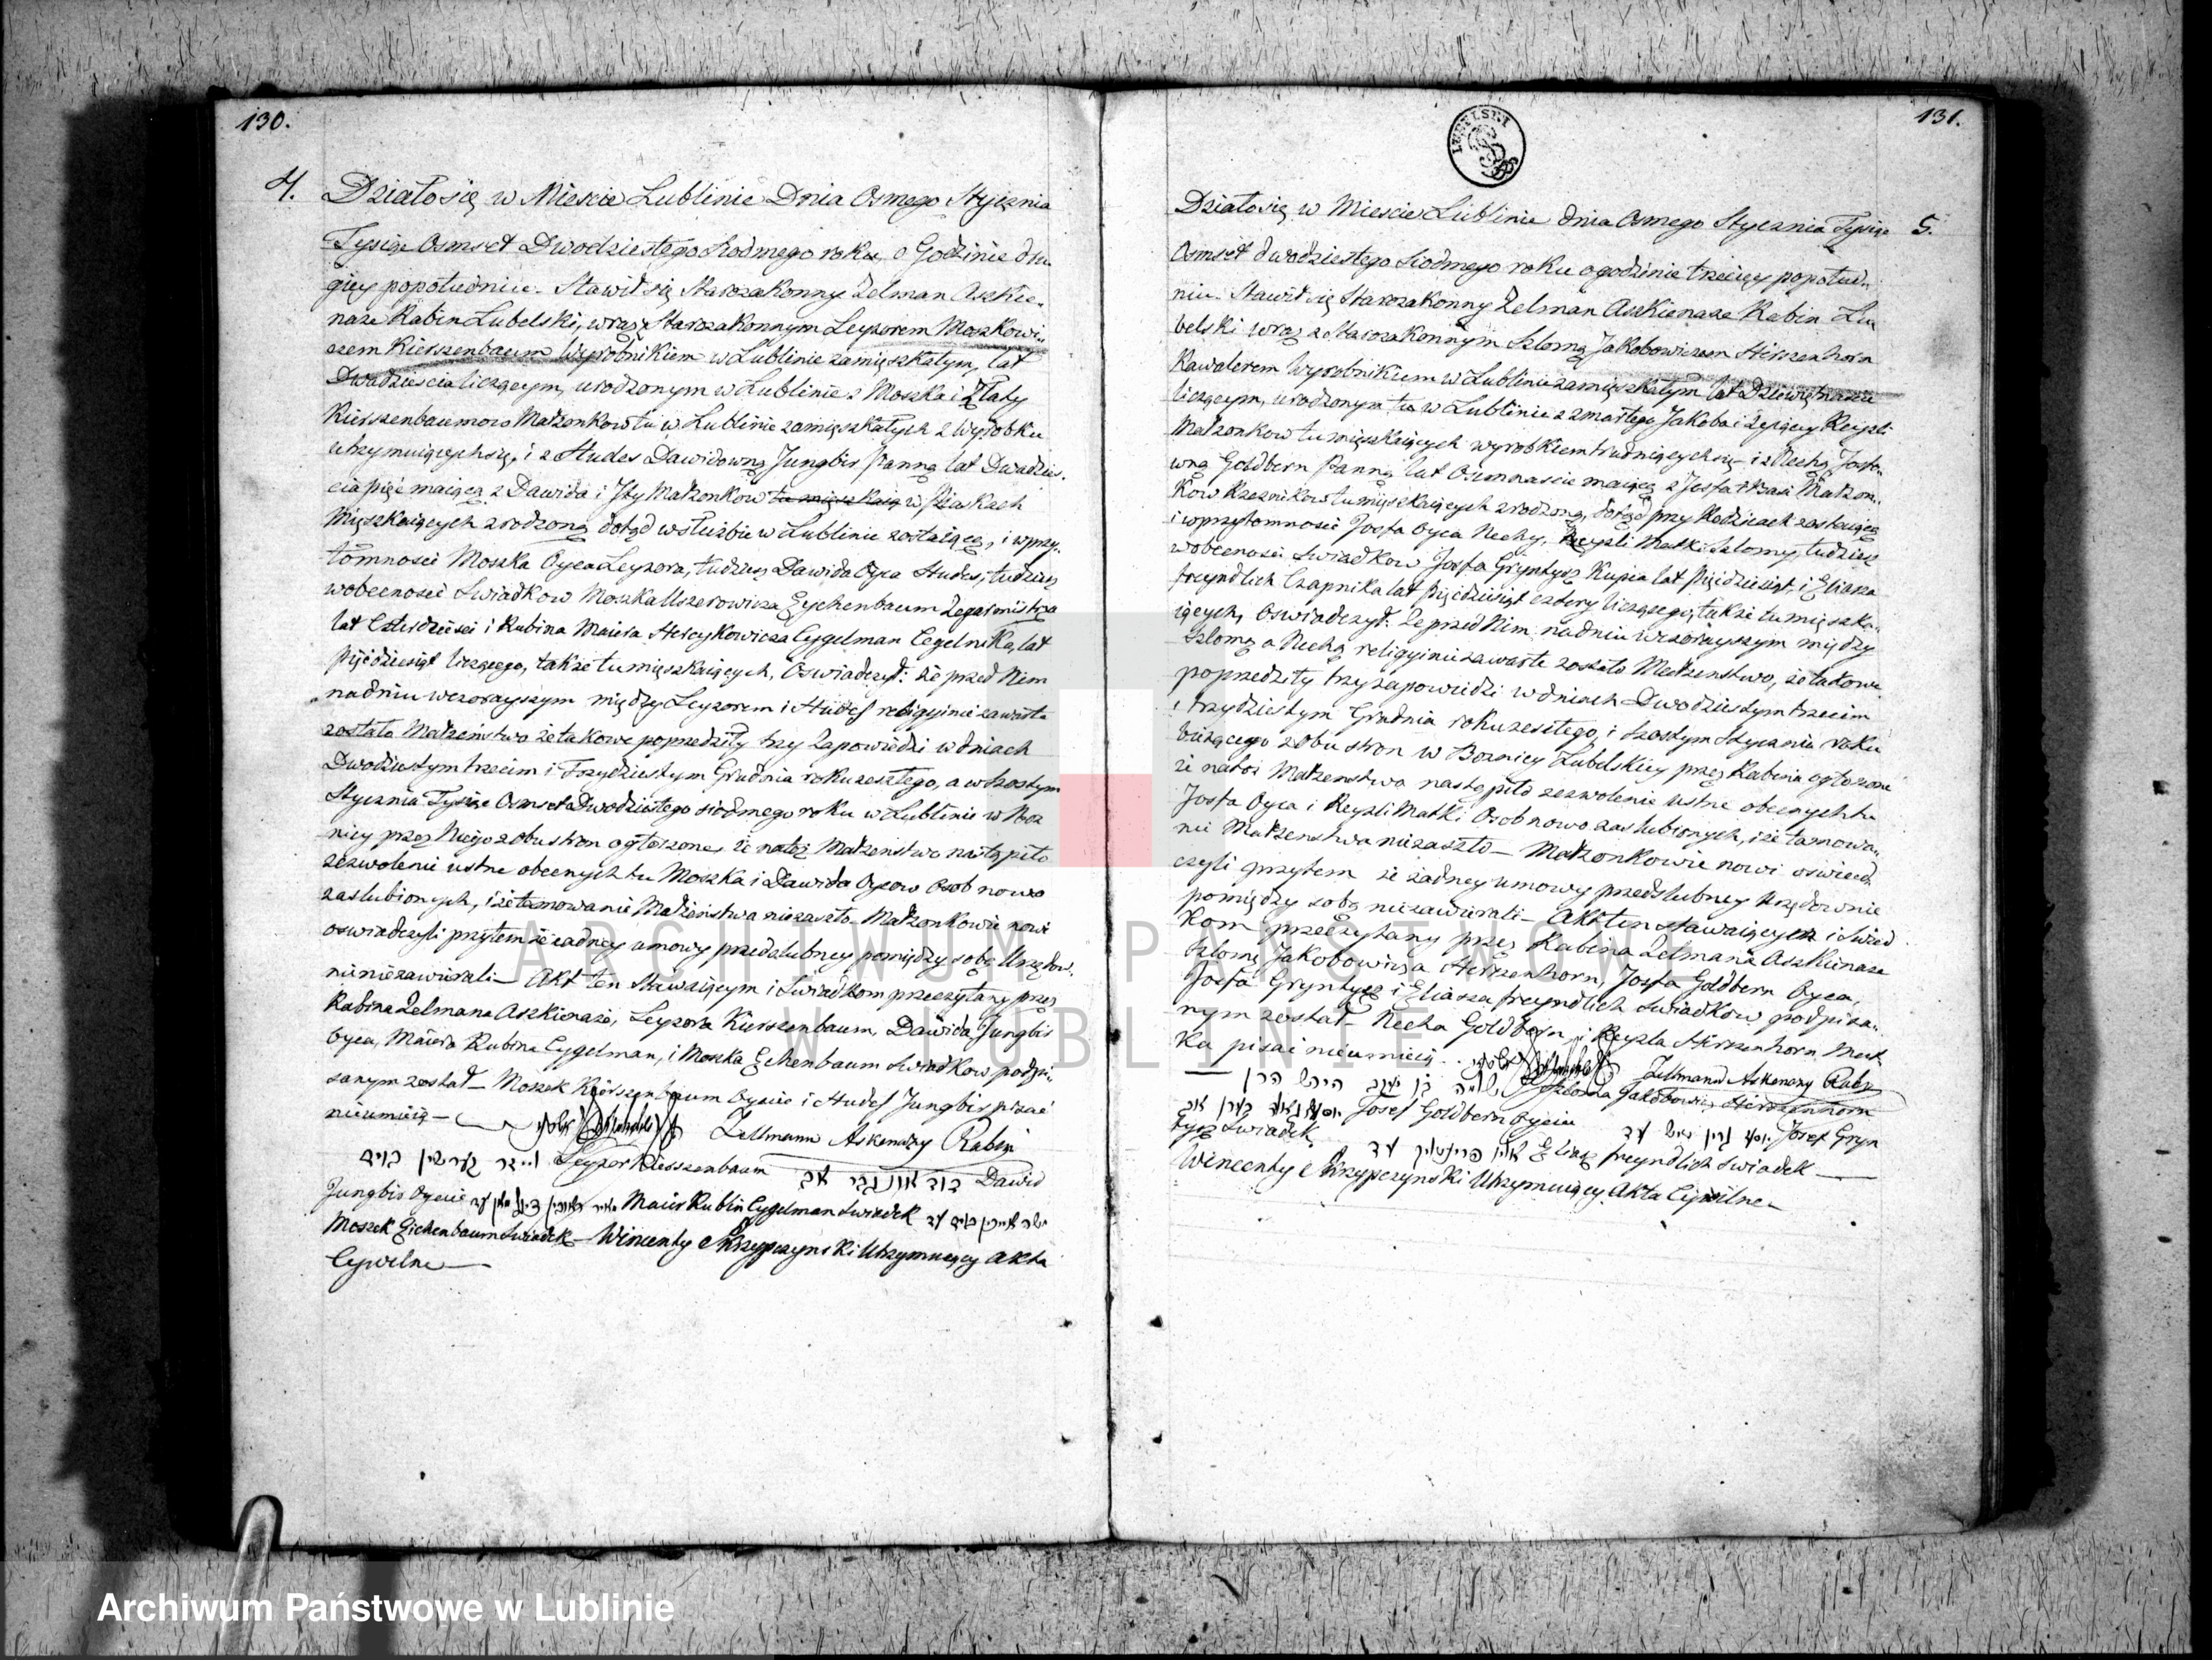 130.
4. Działo się w Miescie Lublinie Dnia Osmego Stycznia
Tysiąc Osmset Dwodziestego Siodmego roku, o Godzinie dru
giey popołudniu. Stawił się Starozakonny Zelman Aszkie„
naze Rabin Lubelski, wraz z Starozakonnym Leyzorem Moszkowi„
czem Kierszenbaum Wyrobnikiem w Lublinie zamięszkałym, lat
Dwadziescia liczącym, urodzonym w Lublinie z Moszka i Złaty
Kierszenbaumow Małzonkow tu w Lublinie zamięszkałych z Wyrobku
utrzymuiących się, i z Hudes Dawidowną Jungbir Panną lat Dwadzies„
cia pięć maiącą z Dawida i Ity Małzonkow tu mięszkaią w Piaskach
Mięszkaiących zrodzoną dotąd w słuzbie w Lublinie zostaiącą, i w przy„
tomnosci Moszka Oyca Leyzora, tudziesz Dawida Oyca Hudes, tudziesz
wobecnosci Swiadkow Moszka Uszerowicza Eychenbaum Zegarmistrza
lat Czterdziesci i Rubina Maiera Hercykowicza Cygelman Cegelnika, lat
Pięćdziesiąt liczącego, także tu mięszkaiących, Oswiadczył: że przed Nim
na dniu wczorayszym między Leyzorem i Hudes religyinie zawarte
zostało Małzeństwo że takowe poprzedziły trzy Zapowiedzi w dniach
Dwodziestym trzecim i Trzydziestym Grudnia roku zeszłego, a w Szostym
Stycznia Tysiąc Osmset Dwodziestego siodmego roku w Lublinie w Boz
nicy przez Niego z obu stron ogłoszone, że na toż Małzenstwo nastąpiło
zezwolenie ustne obecnych tu Moszka i Dawida Oycow Osob nowo
zaslubionych, i że tamowanie Małzeństwa niezaszło. Małzonkowie nowi
oswiadczyli przytem że żadney umowy przedslubney pomiędzy sobą Urzędow„
nie niezawierali — Akt ten Stawaiącym i Swiadkom przeczytany przez
Rabina Zelmana Aszkienaze, Leyzora Kierszenbaum, Dawida Jungbir
Oyca, Maiera Rubina Cygelman, i Moszka Eychenbaum Swiadkow podpi„
sanym został — Moszek Kierszenbaum Oyciec i Hudes Jungbir pisać
nieumieią — Zellmann Askenazy Rabin
Leyzor Kierszenbaum Dawid
Jungbir Oyciec Maier Rubin Cygelman Swiadek
Moszek Eichenbaum Swiadek — Wincenty Skrzypczynski Utrzymuiący Akta
Cywilne —
131.
5. Działo się w Miescie Lublinie dnia Osmego Stycznia Tysiąc
Osmset dwodziestego Siodmego roku o godzinie trzeciey popołud„
niu. Stawił się Starozakonny Zelman Aszkienaze Rabin Lu
belski wraz z Starozakonnym Szlomą Jakobowiczem Hirszenhorn
Kawalerem Wyrobnikiem w Lublinie zamięszkałym lat Dziewiętnascie
liczącym, urodzonym tu w Lublinie z zmarłego Jakoba i żyiącey Reyzli
Małzonkow tu mięszkaiących wyrobkiem trudniących się — i z Nechą Josfo„
wną Goldbern Panną lat Osmnascie maiącą z Josfa i Basi Małzon„
kow Rzeznikow tu mięszkaiących zrodzoną, dotąd przy Rodzicach zostaiącą
i w przytomnosci Josfa Oyca Nechy, Reyzli Matki Szlomy, tudziesz
w obecnosci Swiadkow Josfa Gryntysz Kupca lat Pięćdziesiąt, i Eliasza
Freyndlich Czapnika lat Pięćdziesiąt cztery liczącego, także tu mięszka„
iących, Oswiadczył: że przed Nim na dniu wczorayszym między
Szlomą a Nechą religyinie zawarte zostało Małzenstwo, że takowe
poprzedziły trzy zapowiedzi w dniach Dwodziestym trzecim
i trzydziestym Grudnia roku zeszłego, i szostym Stycznia roku
bieżącego z obu stron w Boznicy Lubelskiey przez Rabina ogłoszone
że na toż Małzenstwo nastąpiło zezwolenie ustne obecnych tu
Josfa Oyca i Reyzli Matki Osob nowo zaslubionych, i że tamowa„
nie Małzenstwa niezaszło — Małzonkowie nowi oswiad„
czyli przytem że żadney umowy przedslubney Urzędownie
pomiędzy sobą niezawierali — Akt ten stawaiącym i Swiad
kom przeczytany przez Rabina Zelmana Aszkienaze
Szlomę Jakobowicza Herszenhorn, Josfa Goldbern Oyca,
Josfa Gryntysz i Eliasza Freyndlich Swiadkow podpisa„
nym został — Necha Goldbern i Reyzla Hirszenhorn Mat„
ka pisać nieumieią. Zellmann Askenazy Rabin
שלמה בן יעקב הירש הרן — Szloma Jakobowicz Hirszenhorn
Josef Goldbern Oyciec Josef Gryn
tysz Swiadek Eliasz Freyndlich Swiadek —
Wincenty Skrzypczynski Utrzymuiący Akta Cywilne
ARCHIWUM PAŃSTWOWE
W LUBLINIE
Archiwum Państwowe w Lublinie